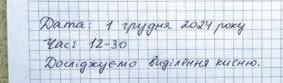 Дата: 1 грудня 2024 року
Час: 12-30
Досліджуємо виділення кисню.